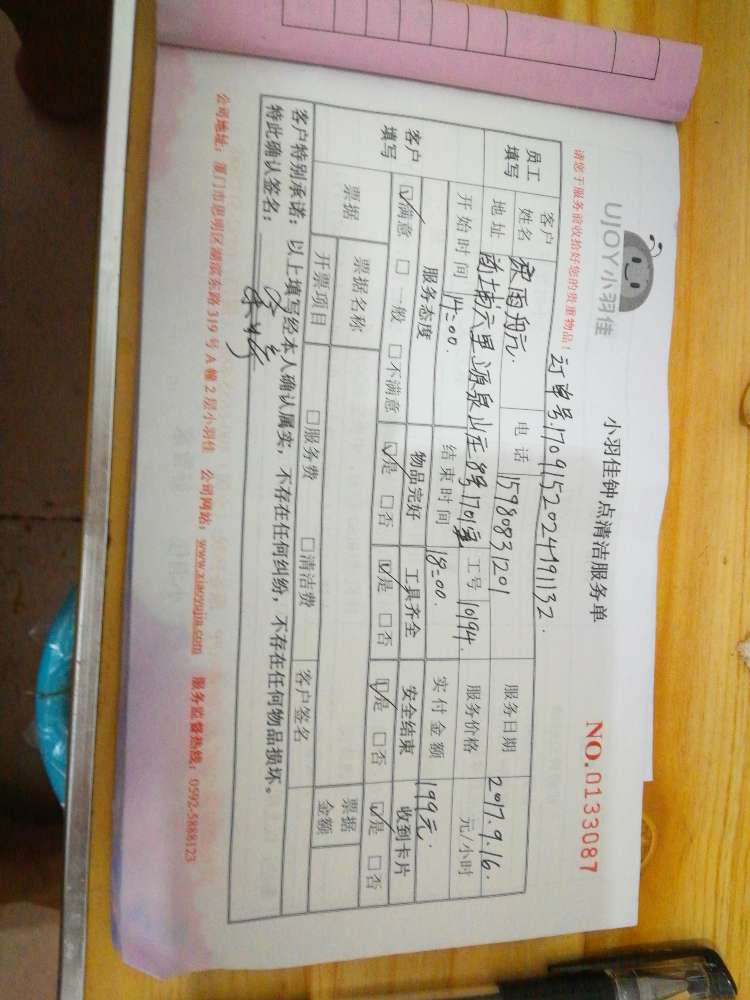 UJOY小羽佳
小羽佳钟点清洁服务单
NO.0133087
请您于服务前收拾好您的贵重物品！
订单号:170915202419132.
员工填写 客户姓名 电话 15980831201 服务日期 2017.9.16.
地址 源泉山庄8号1701室 工号 10194. 服务价格 元/小时
开始时间 14:00. 结束时间 18:00. 实付金额 199元.
客户填写 服务态度 物品完好 工具齐全 安全结束 收到卡片
☑满意 □一般 □不满意 ☑是 □否 ☑是 □否 ☑是 □否 ☑是 □否
票据 票据名称 票据金额
开票项目 □服务费 □清洁费 客户签名
客户特别承诺：以上填写经本人确认属实，不存在任何纠纷，不存在任何物品损坏。
特此确认签名：
公司地址：厦门市思明区湖滨东路319号A幢2层小羽佳 公司网站：www.xiaoyujia.com 服务监督热线：0592-5888123